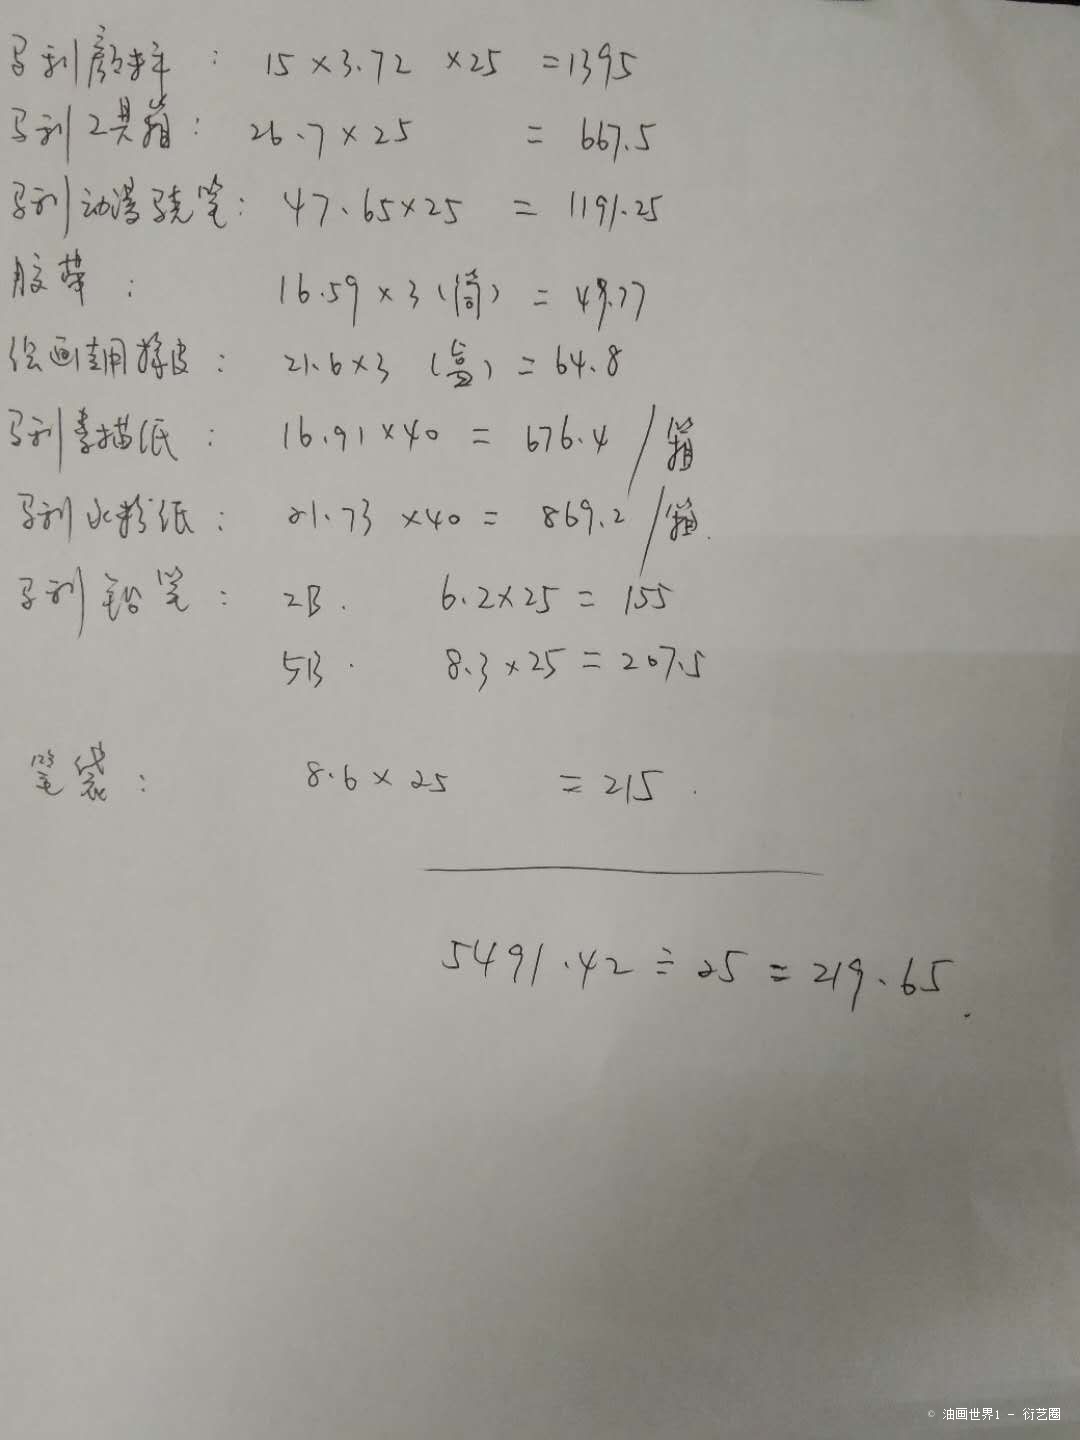 马利颜料： 15×3.72 ×25 =1395
马利工具箱： 26.7×25 = 667.5
马利动漫 笔： 47.65×25 = 1191.25
胶带： 16.59×3（筒）= 49.77
绘画专用橡皮： 21.6×3（盒）= 64.8
马利素描纸： 16.91×40 = 676.4 /箱
马利水粉纸： 21.73×40 = 869.2 /箱.
马利铅笔： 2B. 6.2×25 = 155
5B. 8.3×25 = 207.5
笔袋： 8.6×25 = 215.
5491.42÷25 = 219.65.
© 油画世界1 - 衍艺圈